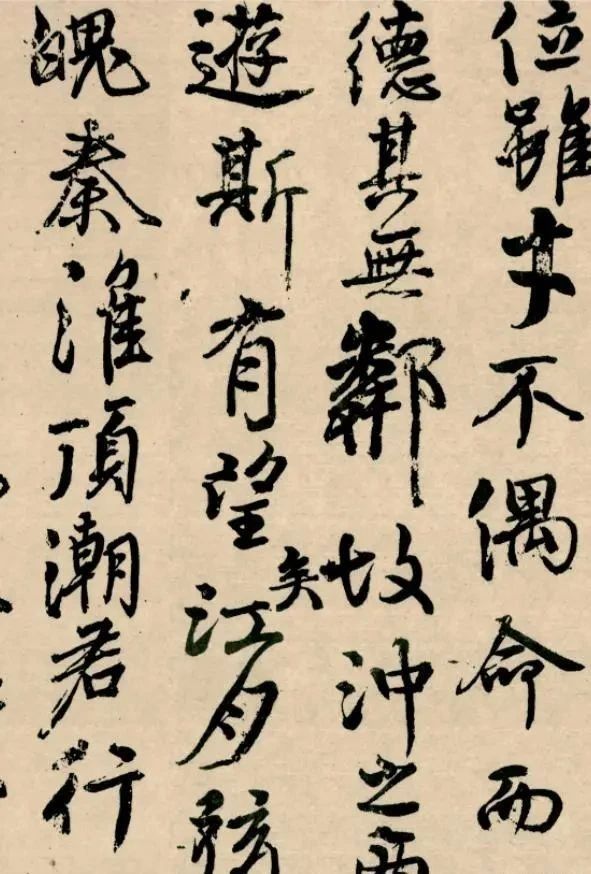 位雖才不偶命而
德其無鄰故沖之西
遊斯有望矣江月
魄秦淮頂潮君行